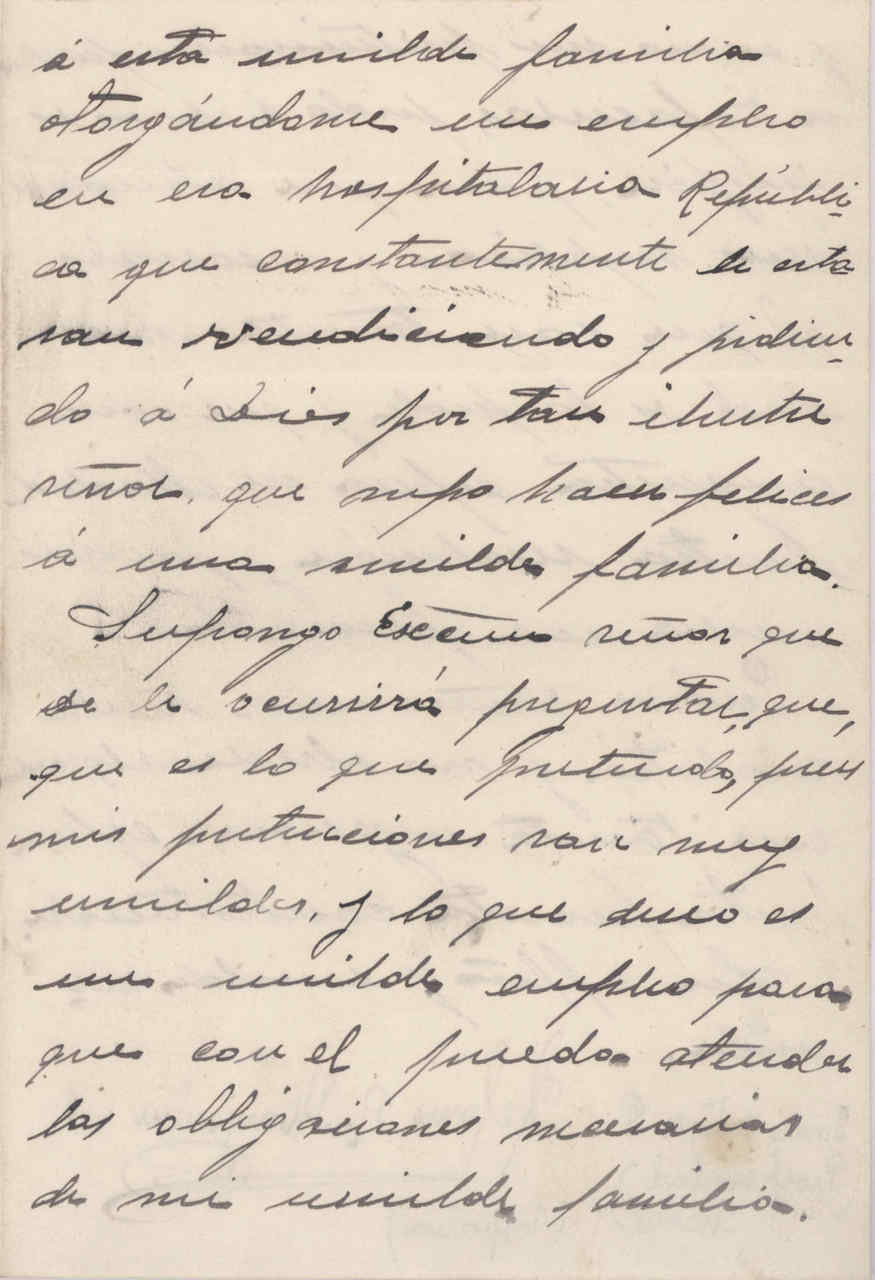 á esta umilde familia
otorgándome un empleo
en esa hospitalaria Repúbli-
ca que constantemente le esta-
ran vendiciendo y pidien-
do á Dios por tan ilustre
señor, que supo hacer felices
á una umilde familia.
Supongo Excemo señor que
se le ocurrirá preguntar, que,
que es lo que pretendo, pues
mis pretenciones son muy
umildes, y lo que deseo es
un umilde empleo para
que con el pueda atender
las obligaciones necesarias
de mi umilde familia.